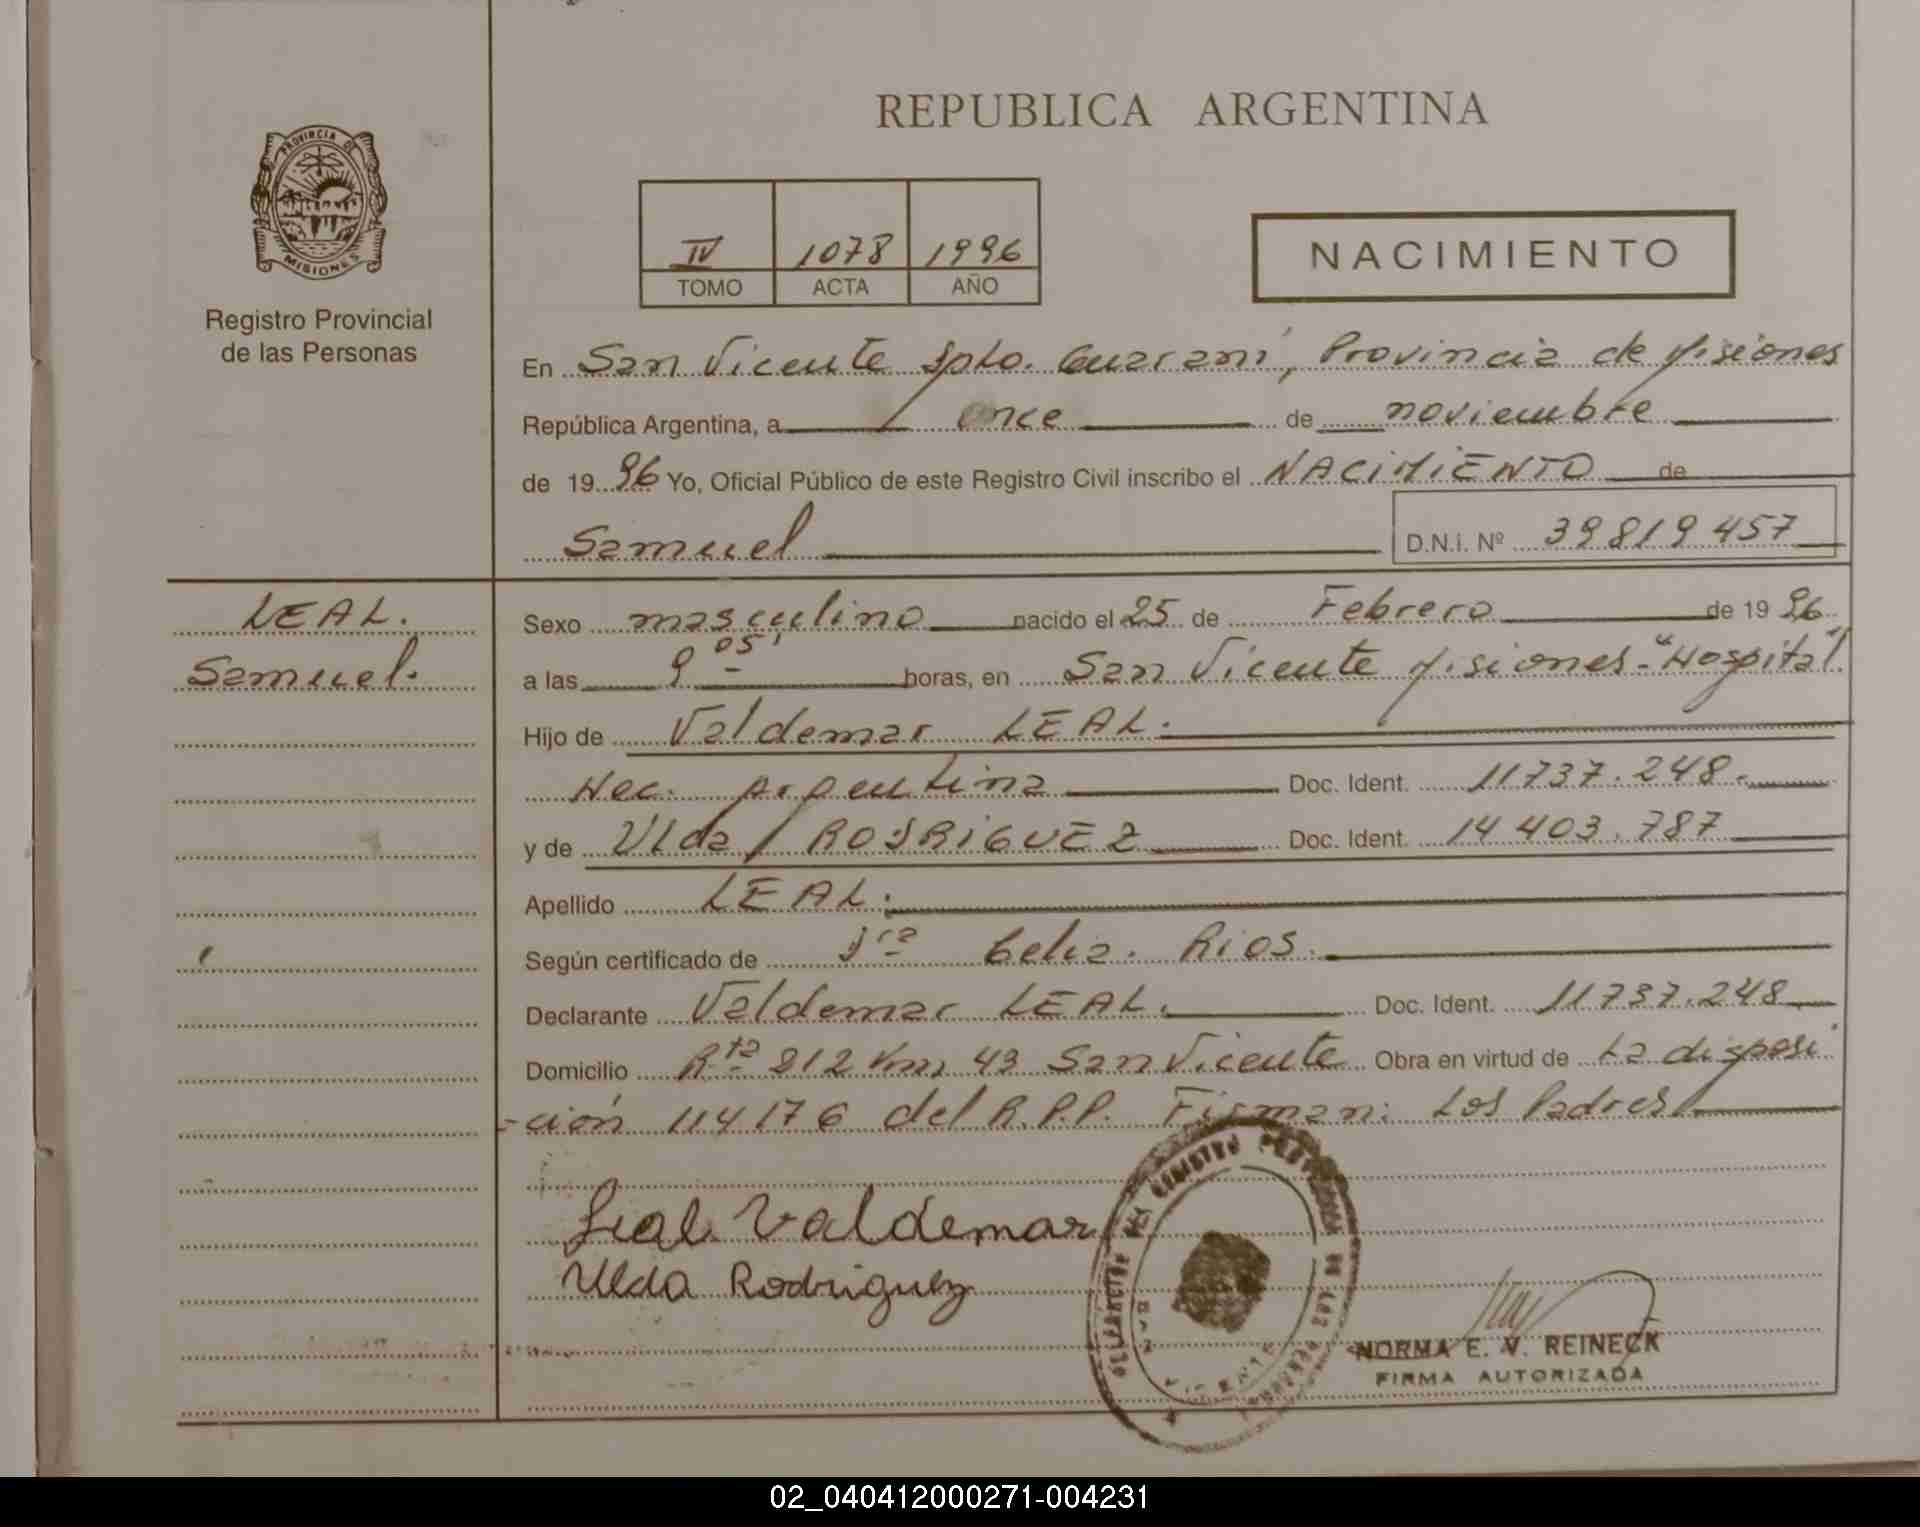 PROVINCIA DE
MISIONES
Registro Provincial
de las Personas
REPUBLICA ARGENTINA
IV 1078 1996
TOMO ACTA AÑO
NACIMIENTO
En San Vicente Dpto. Guaraní, Provincia de Misiones
República Argentina, a once de noviembre
de 1996 Yo, Oficial Público de este Registro Civil inscribo el NACIMIENTO de
Samuel D.N.I. Nº 39819457
LEAL.
Samuel.
Sexo masculino nacido el 25 de Febrero de 1996
a las 9 05' horas, en San Vicente Misiones - "Hospital".
Hijo de Valdemar LEAL.
Nac. Argentina Doc. Ident. 11737.248.
y de Ulda RODRIGUEZ Doc. Ident. 14403.787
Apellido LEAL.
Según certificado de Dra Celia. Rios.
Declarante Valdemar LEAL. Doc. Ident. 11737.248
Domicilio Rta 212 Km, 43 San Vicente Obra en virtud de La disposi
-ción 114176 del R.P.P. Firman: Los Padres
Leal Valdemar
Ulda Rodriguez
NORMA E. V. REINECK
FIRMA AUTORIZADA
02_040412000271-004231